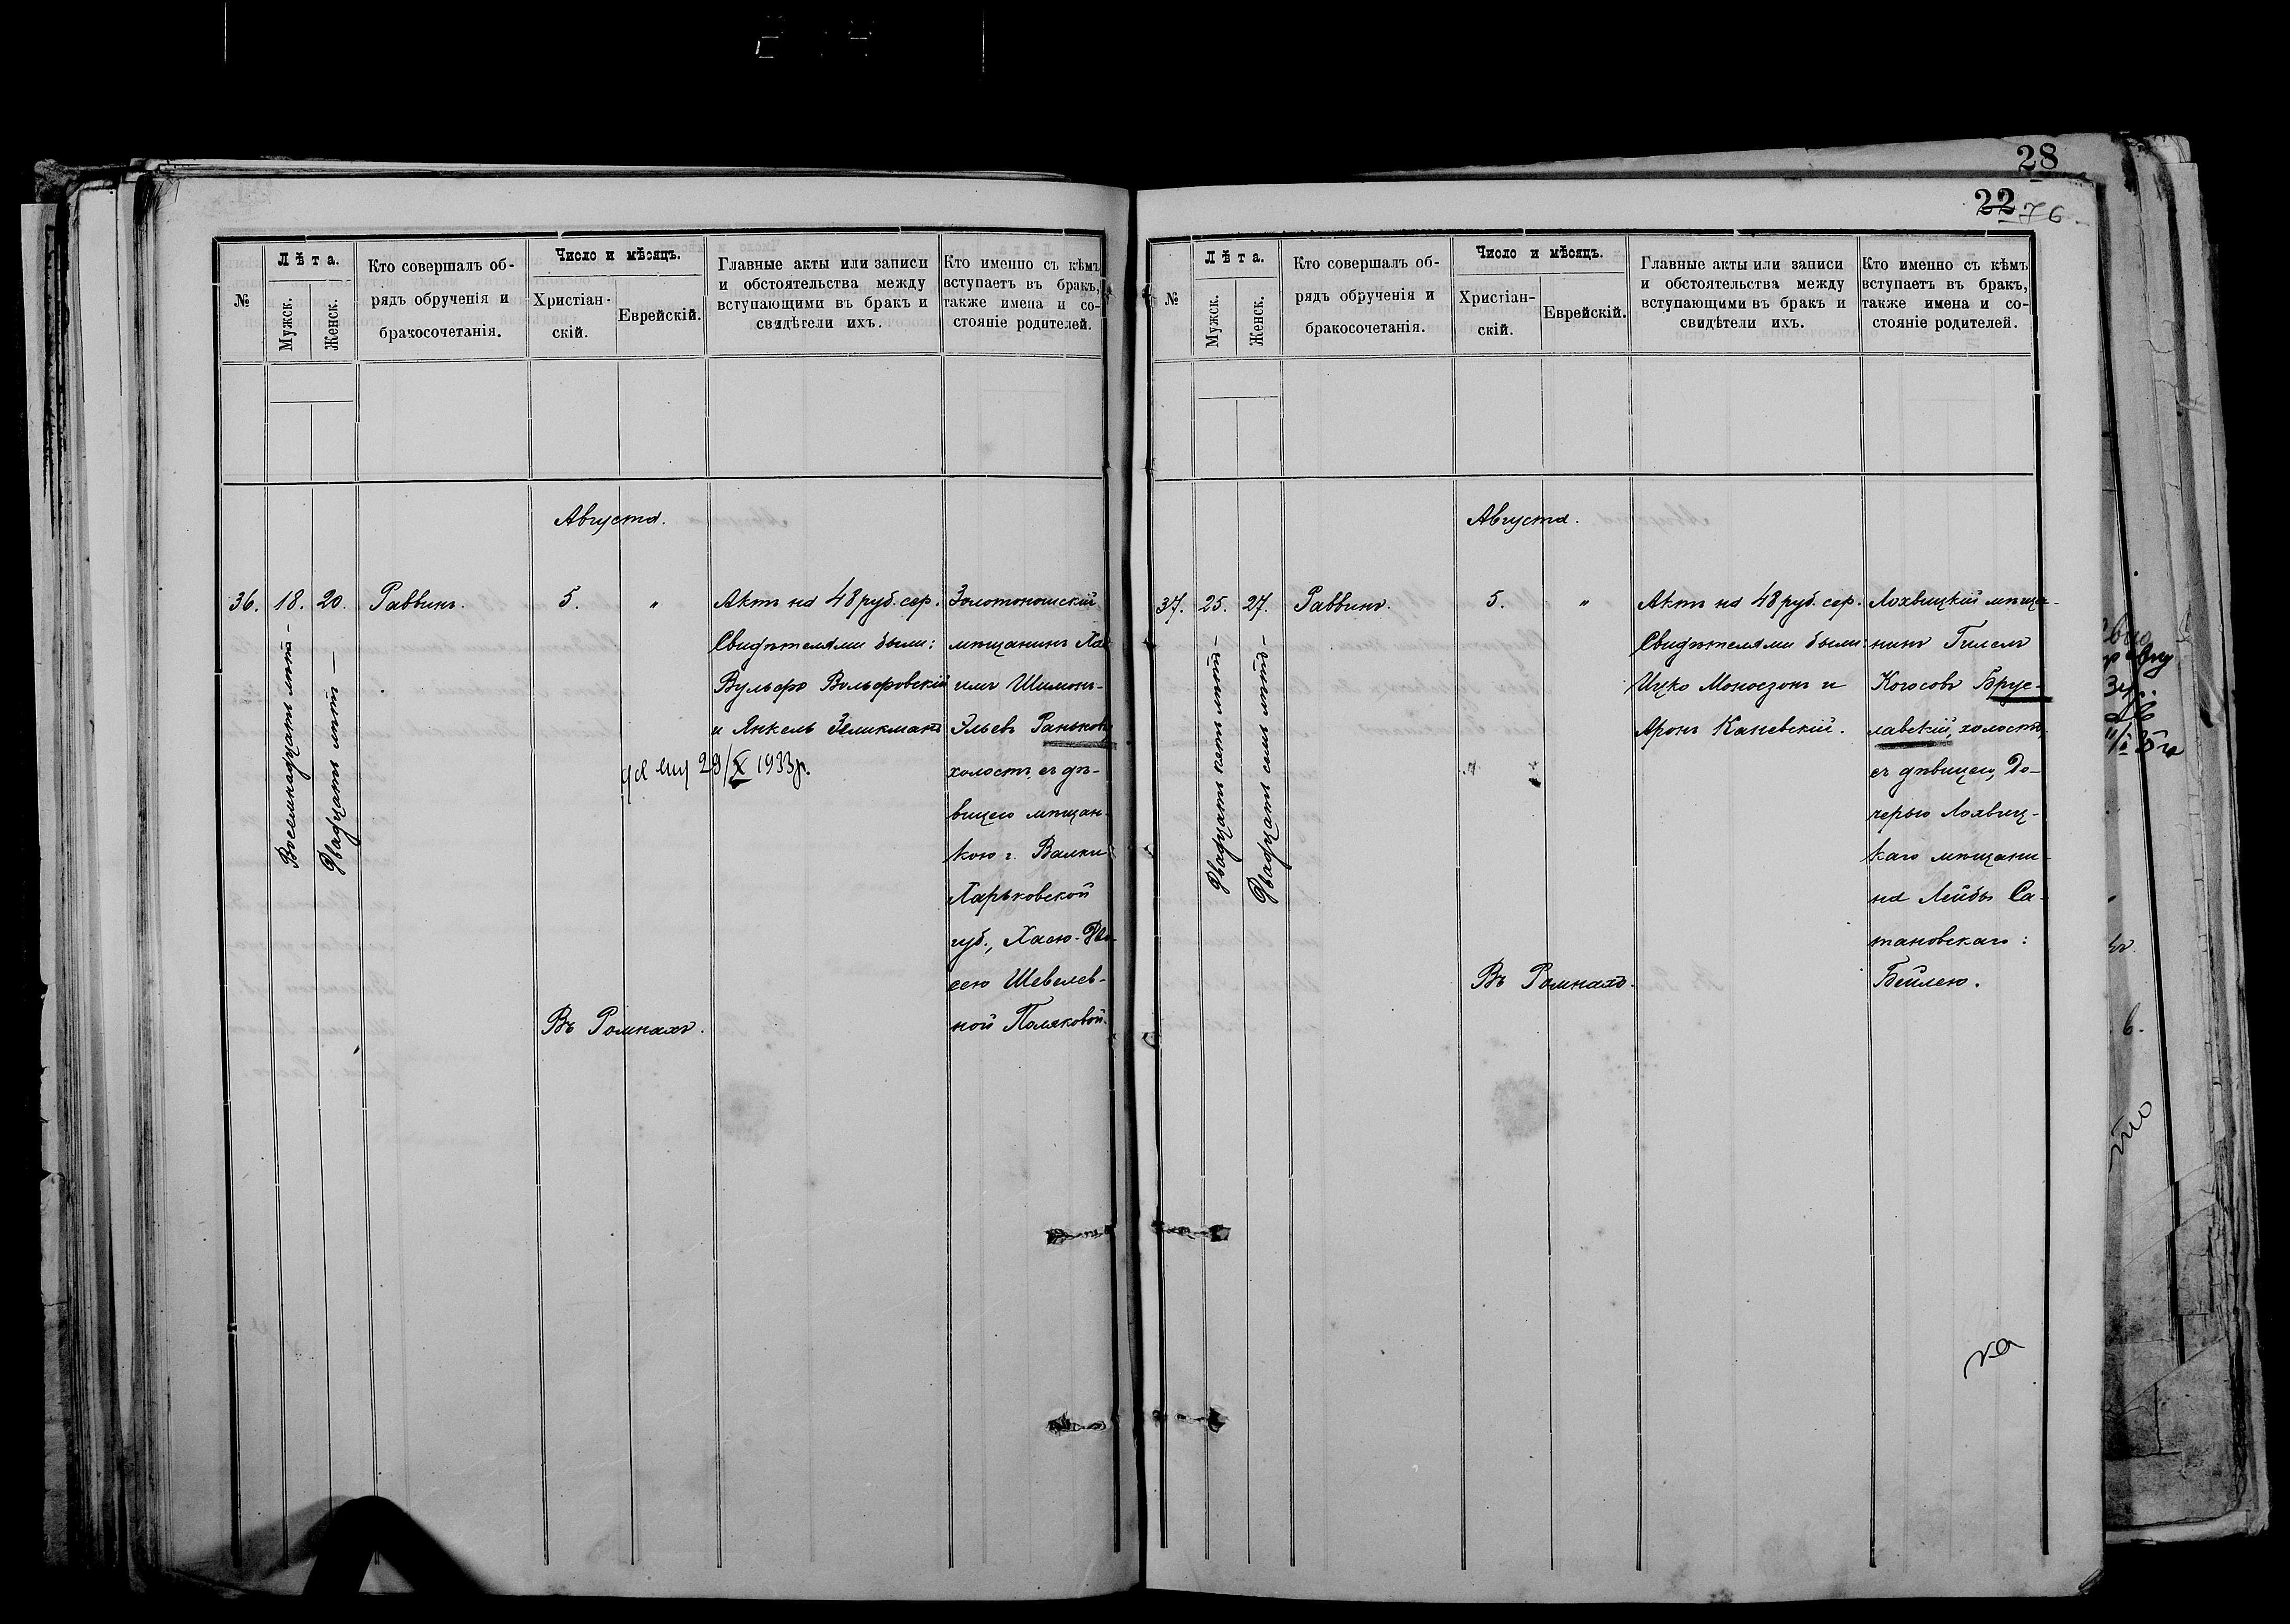 28
22 76.
№
Лѣта.
Мужск.
Женск.
Кто совершалъ об-
рядъ обрученія и
бракосочетанія.
Число и мѣсяцъ.
Христіан-
скій.
Еврейскій.
Главные акты или записи
и обстоятельства между
вступающими въ бракъ и
свидѣтели ихъ.
Кто именно съ кѣмъ
вступаетъ въ бракъ,
также имена и со-
стояніе родителей.
Августа.
36.
18.
Восемнадцать лѣтъ —
20.
Двадцать лѣтъ —
Раввинъ.
5.
"
Въ Ромнахъ.
Актъ на 48 руб. сер.
Свидѣтелями были:
Вульфъ Вольфовскій
и Янкель Зеликманъ
29/X 1933 р.
Золотоношскій
мѣщанинъ Ха
имъ Шимонъ-
Эльевъ Раньковъ
холостъ, съ дѣ-
вицею мѣщан-
кою г. Валки
Харьковской
губ., Хасю-Дво-
сею Шевелев-
ной Поляковой.
№
Лѣта.
Мужск.
Женск.
Кто совершалъ об-
рядъ обрученія и
бракосочетанія.
Число и мѣсяцъ.
Христіан-
скій.
Еврейскій.
Главные акты или записи
и обстоятельства между
вступающими въ бракъ и
свидѣтели ихъ.
Кто именно съ кѣмъ
вступаетъ въ бракъ,
также имена и со-
стояніе родителей.
Августа.
37.
25.
Двадцать пять лѣтъ —
27.
Двадцать семь лѣтъ —
Раввинъ.
5.
"
Въ Ромнахъ.
Актъ на 48 руб. сер.
Свидѣтелями были:
Ицко Моносзонъ и
Аронъ Каневскій.
Лохвицкій мѣща-
нинъ Гилель
Когосовъ Брус-
лавскій, холостъ,
съ дѣвицею, до-
черью Лохвиц-
каго мѣщани-
на Лейбы Са-
тановскаго:
Бейлею.